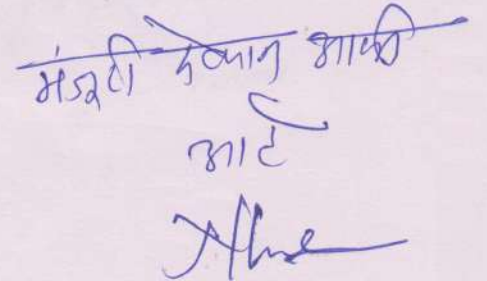 मंजूरी देण्यात आली
आहे